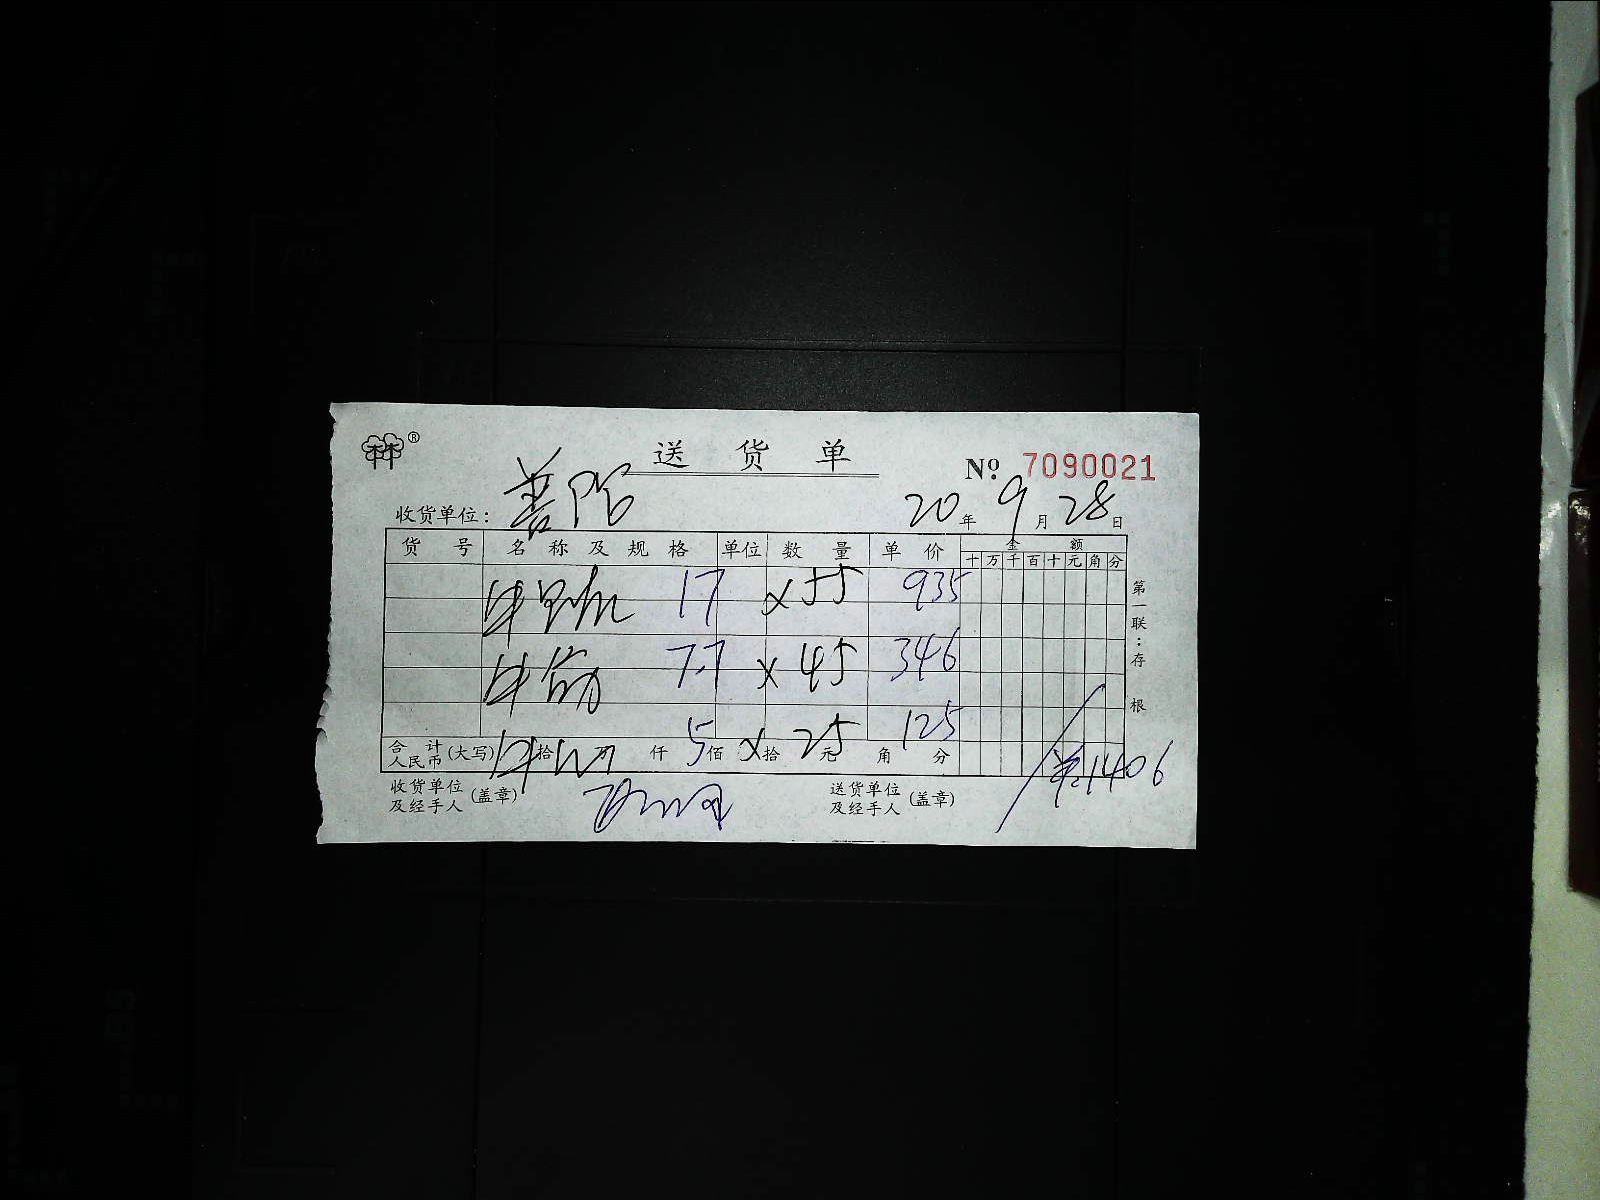 送货单
№ 7090021
收货单位: 善 20年9月28日
货号 名称及规格 单位 数量 单价 金额
十 万 千 百 十 元 角 分
牛 17 x 55 935
牛 7.7 x 45 346
牛 5 x 25 125
合计人民币(大写) 拾 万 仟 佰 拾 元 角 分 1406
收货单位及经手人(盖章) 送货单位及经手人(盖章)
第一联:存根